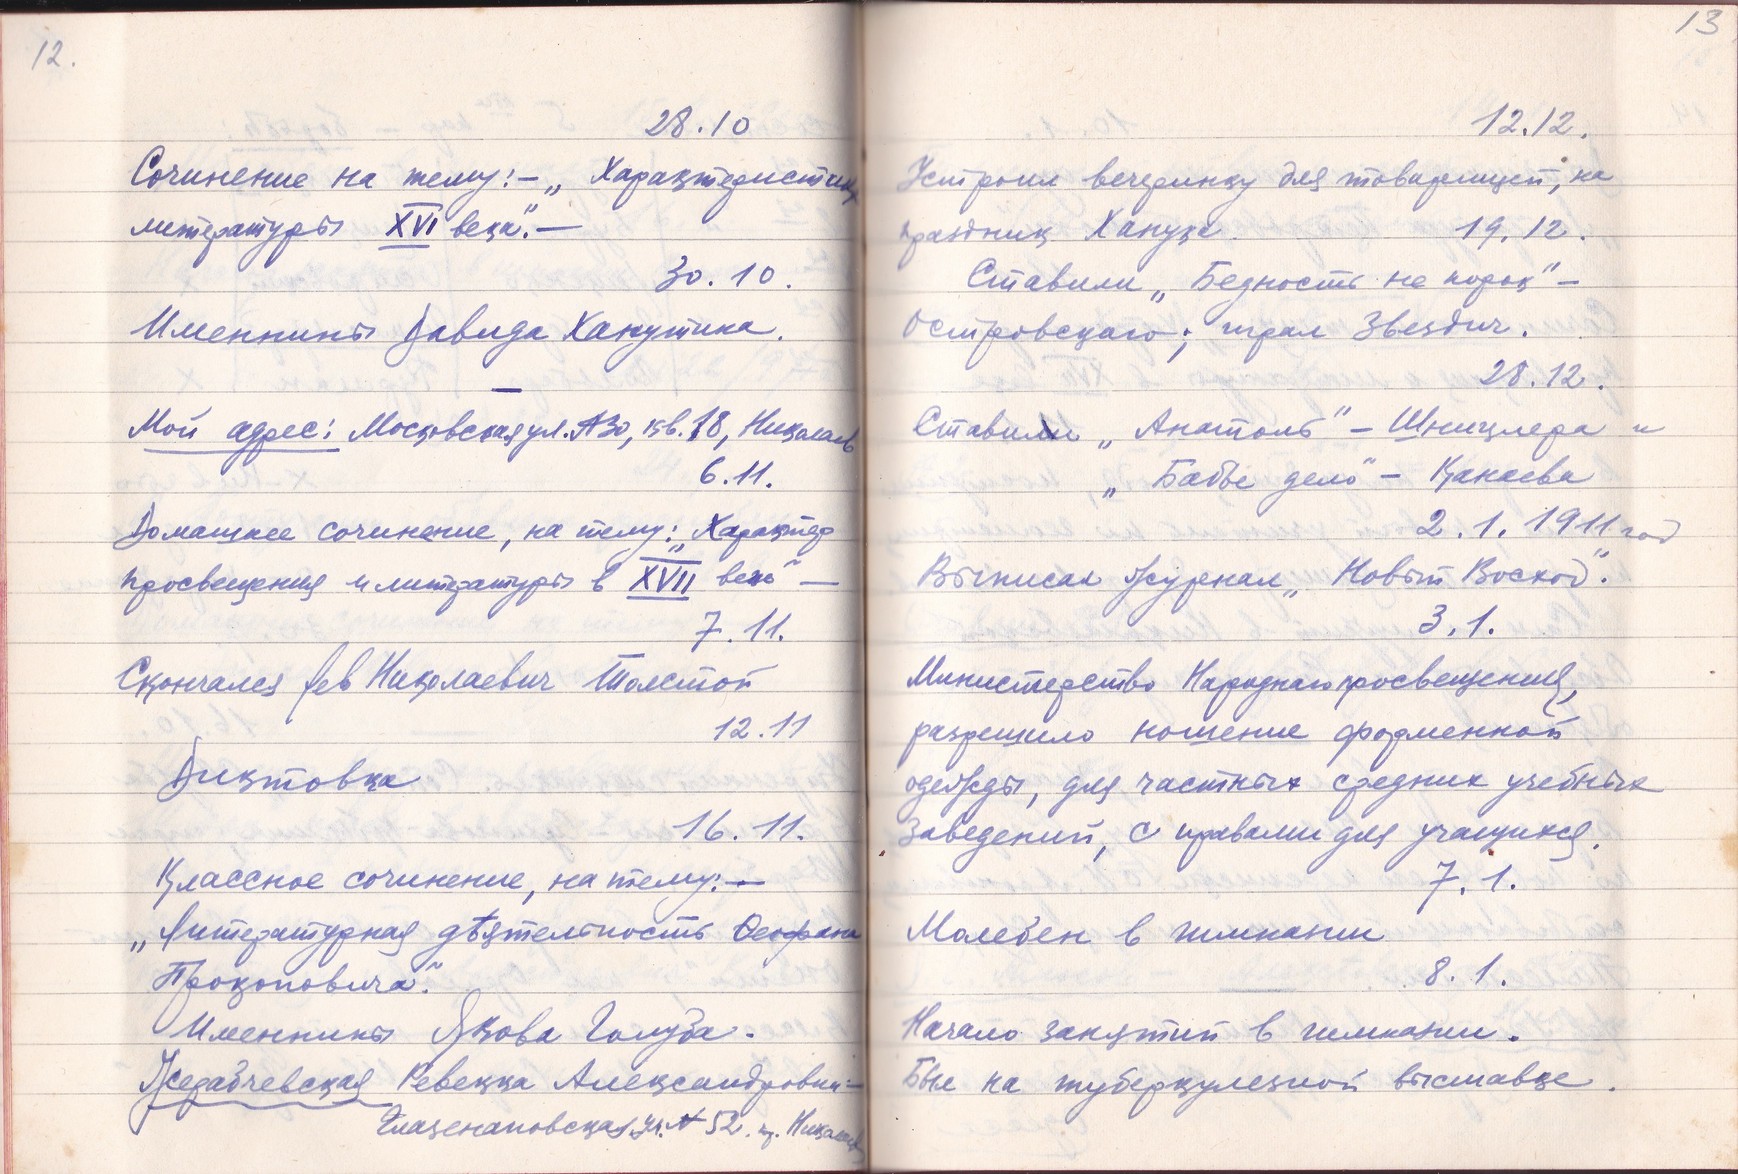 12.
28.10
Сочинение на тему:– „Характеристика
литературы XVI века".–
30.10.
Именины Давида Ханутина.
—
Мой адрес: Московская ул. №30, кв. 18, Николаев
6.11.
Домашнее сочинение, на тему: „Характер
просвещения и литературы в XVII веке" –
7.11.
Скончался Лев Николаевич Толстой
12.11
Диктовка
16.11.
Классное сочинение, на тему: –
„Литературная дѣятельность Феофана
Прокоповича".
Именины Якова Голуба.
Ревекка Александровна –
ул. № 52. Николаев
13
12.12.
Устроил вечеринку для товарищей, на
праздник Ханука. 19.12.
Ставили „Бедность не порок" –
Островскаго; играл Звездич.
28.12.
Ставили „Анатоль" – Шницлера и
„Бабье дело" – Канаева
2.1.1911 год
Выписал журнал „Новый Восход".
3.1.
Министерство Народнаго просвещения,
разрешило ношение форменной
одежды, для частных средних учебных
заведений, с правами для учащихся.
7.1.
Молебен в гимназии
8.1.
Начало занятий в гимназии.
Был на туберкулезной выставке.